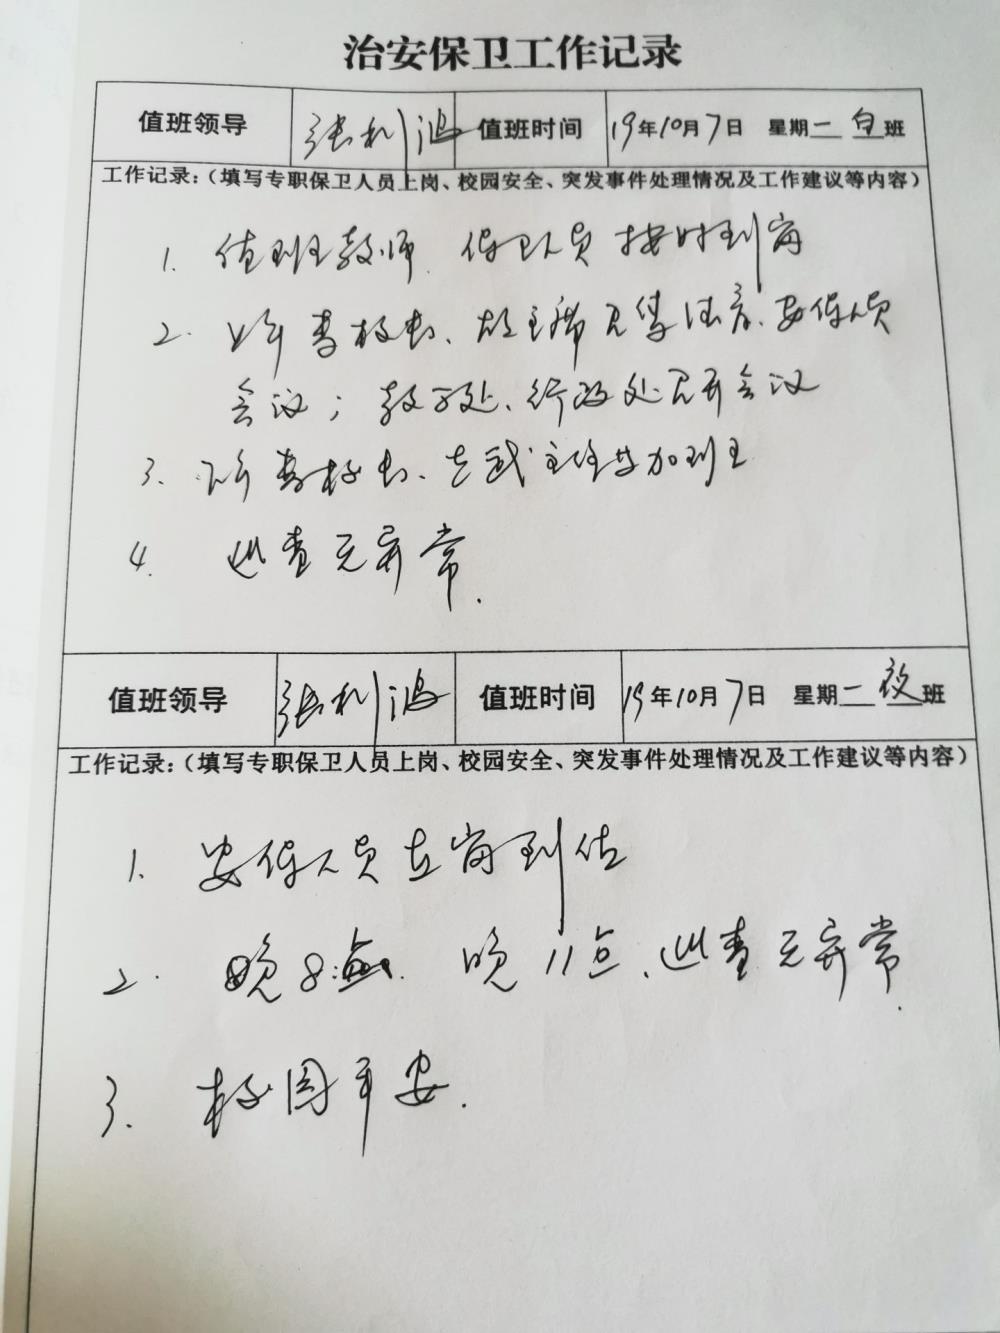 治安保卫工作记录
值班领导 张利鸿 值班时间 19年10月7日 星期一 白班
工作记录：（填写专职保卫人员上岗、校园安全、突发事件处理情况及工作建议等内容）
1. 值班教师、保卫人员按时到岗
2. 上午李校长、主席召集、安保人员
会议；教务处、行政处召开会议
3. 下午李校长、主任参加
4. 巡查无异常.
值班领导 张利鸿 值班时间 19年10月7日 星期一 夜班
工作记录：（填写专职保卫人员上岗、校园安全、突发事件处理情况及工作建议等内容）
1. 安保人员在岗到位
2. 晚8点、晚11点、巡查无异常.
3. 校园平安.